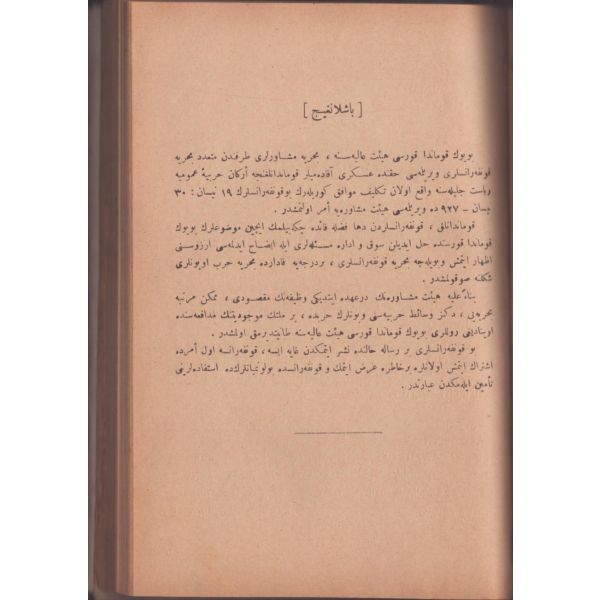 [ باشلانغیج ]
بویوك قوماندا قورسی هیئت عالیه‌سنه ، بحریه مشاورلری طرفندن متعدد بحریه
قونفه‌رانسلری ویریله‌سی حقنده عسكری آقاده‌میلر قوماندانلغنجه اركان حربیهٔ عمومیه
ریاست جلیله‌سنه واقع اولان تكلیف موافق كوریله‌رك بوقونفه‌رانسلرك ۱۹ نیسان : ۳۰
نیسان ـ ۹۲۷ ده ویریله‌سی هیئت مشاوره‌یه امر اولنمشدر .
قوماندانلق ، قونفه‌رانسلردن دها فضله فائده چكه‌بیلمك ایچین موضوعلرك بویوك
قوماندا قورسنده حل ایدیلن سوق و اداره مسئله‌لری ایله ایضاح ایدلمه‌سی آرزوسنی
اظهار ایتمش وبویله‌جه بحریه قونفه‌رانسلری ، بردرجه‌یه قادارده بحریه حرب اویونلری
شكلنه صوقولمشدر .
بناءً علیه هیئت مشاوره‌نك درعهده ایتدیكی وظیفه‌نك مقصودی ، ممكن مرتبه
بحریه‌یی ، دكز وسائط حربیه‌سنی وبونلرك حربده ، بر ملتك موجودیتنك مدافعه‌سنده
اوینادینی روللری بویوك قوماندا قورسی هیئت عالیه‌سنه طانیتدیرمق اولمشدر .
بو قونفه‌رانسلری بر رساله حالنده نشر ایتمكدن غایه ایسه ، قونفه‌رانسه اول امرده
اشتراك ایتمش اولانلره برخاطره عرض ایتمك و قونفه‌رانسده بولونمیانلرك‌ده استفاده‌لرینی
تأمین ایله‌مكدن عبارتدر .